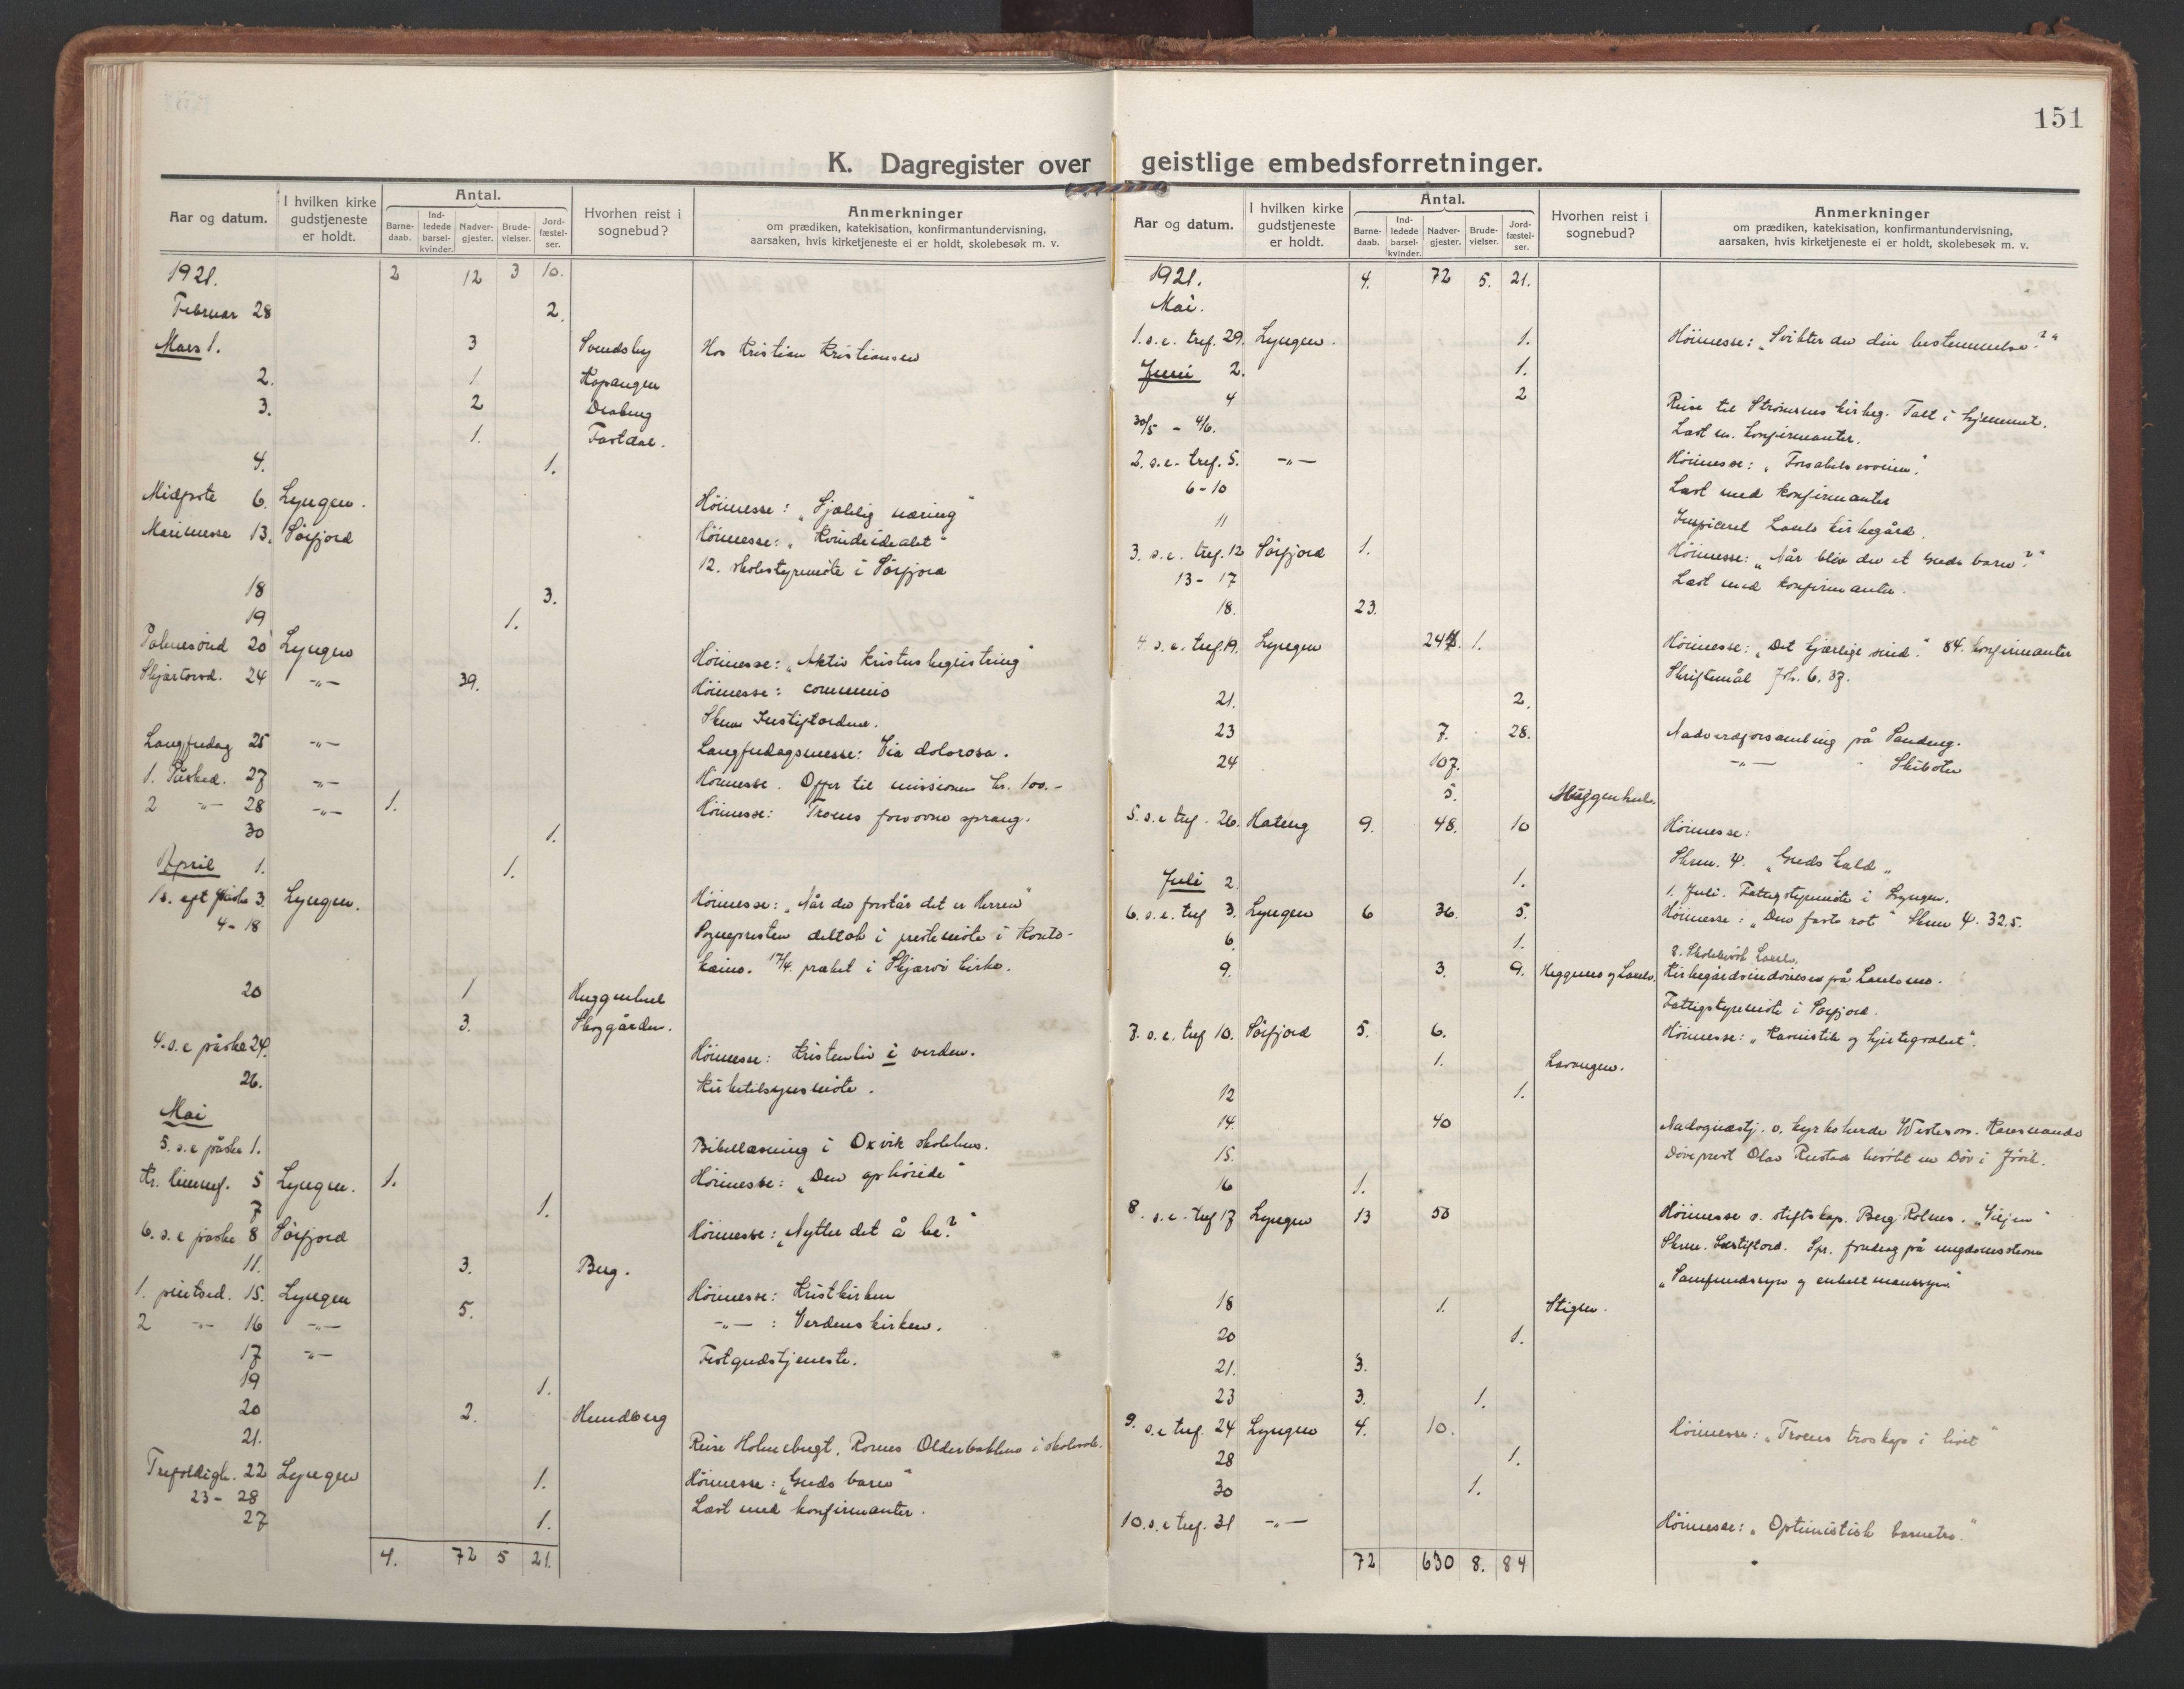 151
K. Dagregister over geistlige embedsforretninger.
Aar og datum. I hvilken kirke gudstjeneste er holdt. Antal. Barne-daab. Ind-ledede barsel-kvinder. Nadver-gjester. Brude-vielser. Jord-fæstel-ser. Hvorhen reist i sognebud? Anmerkninger om prædiken, katekisation, konfirmantundervisning, aarsaken, hvis kirketjeneste ei er holdt, skolebesøk m. v.
1921. 2 12 3 10.
Februar 28 2.
Mars 1. 3 Svendsby Hos Kristian Kristiansen
2. 1. Kopangen
3. 2
1. Fastdal.
4. 1.
Midfaste 6. Lyngen. Höimesse: „Sjælelig næring“
Marimesse 13. Sörfjord Höimesse: „Kvindeidealet“
12. skolestyremöte i Sörfjord
18 3.
19 1.
Palmesönd 20 Lyngen Höimesse: „Aktiv Kristusbegeistring“
Skjærtorsd. 24 -„- 39. Höimesse: communio
Skrm Instiftordene.
Langfredag 25 -„- Langfredagsmesse: Via dolorosa.
1. Påsked. 27 -„- Höimesse. Offer til missionen kr. 100.-
2 -„- 28 -„- 1. Höimesse: Troens forvovne sprang.
30 1.
April 1. 1.
1s. eft påske 3. Lyngen. Höimesse: „Når du forstår det er Herren“
4-18 Sognepresten deltok i prestemöte i Kauto-
keino. 17/4. præket i Skjærvö kirke.
20 1 Huggenhul
3. Skoggården.
4. s. e påske 24. Höimesse: Kristenliv i verden.
26. Kirketilsynsmöte.
Mai
5. s. e påske 1. Bibellæsning i Oxvik skolehus.
Kr. himmelf. 5 Lyngen. 1. Höimesse: „Den ophöiede“
7 1.
6. s. e påske 8 Sörfjord Höimesse: „Nytter det å be?“
11. 3. Berg.
1. pintsed. 15. Lyngen Höimesse: Kristkirken
2 -„- 16 -„- 5. -„- : Verdenskirken.
17 -„- Festgudstjeneste.
19 1.
20 2. Hundberg
21. Reise Holmebugt, Rornes Olderbakken i skolesak.
Trefoldigh. 22 Lyngen 1. Höimesse: „Guds barn“
23-28 Læst med konfirmanter.
27 1.
4. 72 5 21.
Aar og datum. I hvilken kirke gudstjeneste er holdt. Antal. Barne-daab. Ind-ledede barsel-kvinder. Nadver-gjester. Brude-vielser. Jord-fæstel-ser. Hvorhen reist i sognebud? Anmerkninger om prædiken, katekisation, konfirmantundervisning, aarsaken, hvis kirketjeneste ei er holdt, skolebesøk m. v.
1921. 4. 72 5. 21.
Mai.
1. s. e. tref. 29. Lyngen. 1. Höimesse: „Svikter du din bestemmelse?“
Juni 2. 1.
4 2 Reise til Strömsnes kirkeg. Talt i hjemmet.
30/5 - 4/6. Læst m. konfirmanter.
2. s. e. tref. 5. -„- Höimesse: „Forsakelsesveien.“
6-10 Læst med konfirmanter
11 Inspiceret kirkegård.
3. s. e. tref. 12 Sörfjord 1. Höimesse: „Når blev du et Guds barn?“
13-17 Læst med konfirmanter.
18. 23.
4. s. e. tref. 19. Lyngen 1. Höimesse: „Det kjærlige sind.“ 84. konfirmanter
Skriftemål Joh. 6. 37.
21. 2.
23 7. 28. Nadverdforsamling på Sandeng.
24 107. -„- Skibotn
5.
5. s. e tref. 26. Hateng 9. 48. 10 Höimesse:
Skrm. 4. „Guds kald“
Juli 2. 1. 1. Juli. Fattigstyremöte i Lyngen.
6. s. e. tref 3. Lyngen 6 36. 5. Höimesse: „Den faste rot“ Skrm 4. 32.5.
6. 1.
8. Skolebesök
9. 3. 9. Kirkegårdsindvielse på
Fattigstyremöte i Sörfjord.
7. s. e. tref 10. Sörfjord 5. 6. Höimesse: „Kasuistik og hjertegodhet“.
1. Lavangen.
12 1.
14. 40
15. Döveprest Olav Rustad besökt en Döv i
16 1.
8. s. e. tref 17 Lyngen 13 50 Höimesse v. stiftskap. Berg Rolnes. „Veien“
Skrm. Instiftord. Spr. foredrag på ungdomsstevne
„Samfundssyn og enkeltmanssyn“
18 1. Stigen.
20 1.
21. 3.
23 3. 1.
9. s. e tref. 24 Lyngen 4. 10. Höimesse: „Troens troskap i livet“
28 1.
30 1.
10. s. e tref. 31 -„- Höimesse: „Optimistisk barnetro.“
72 630 8. 84